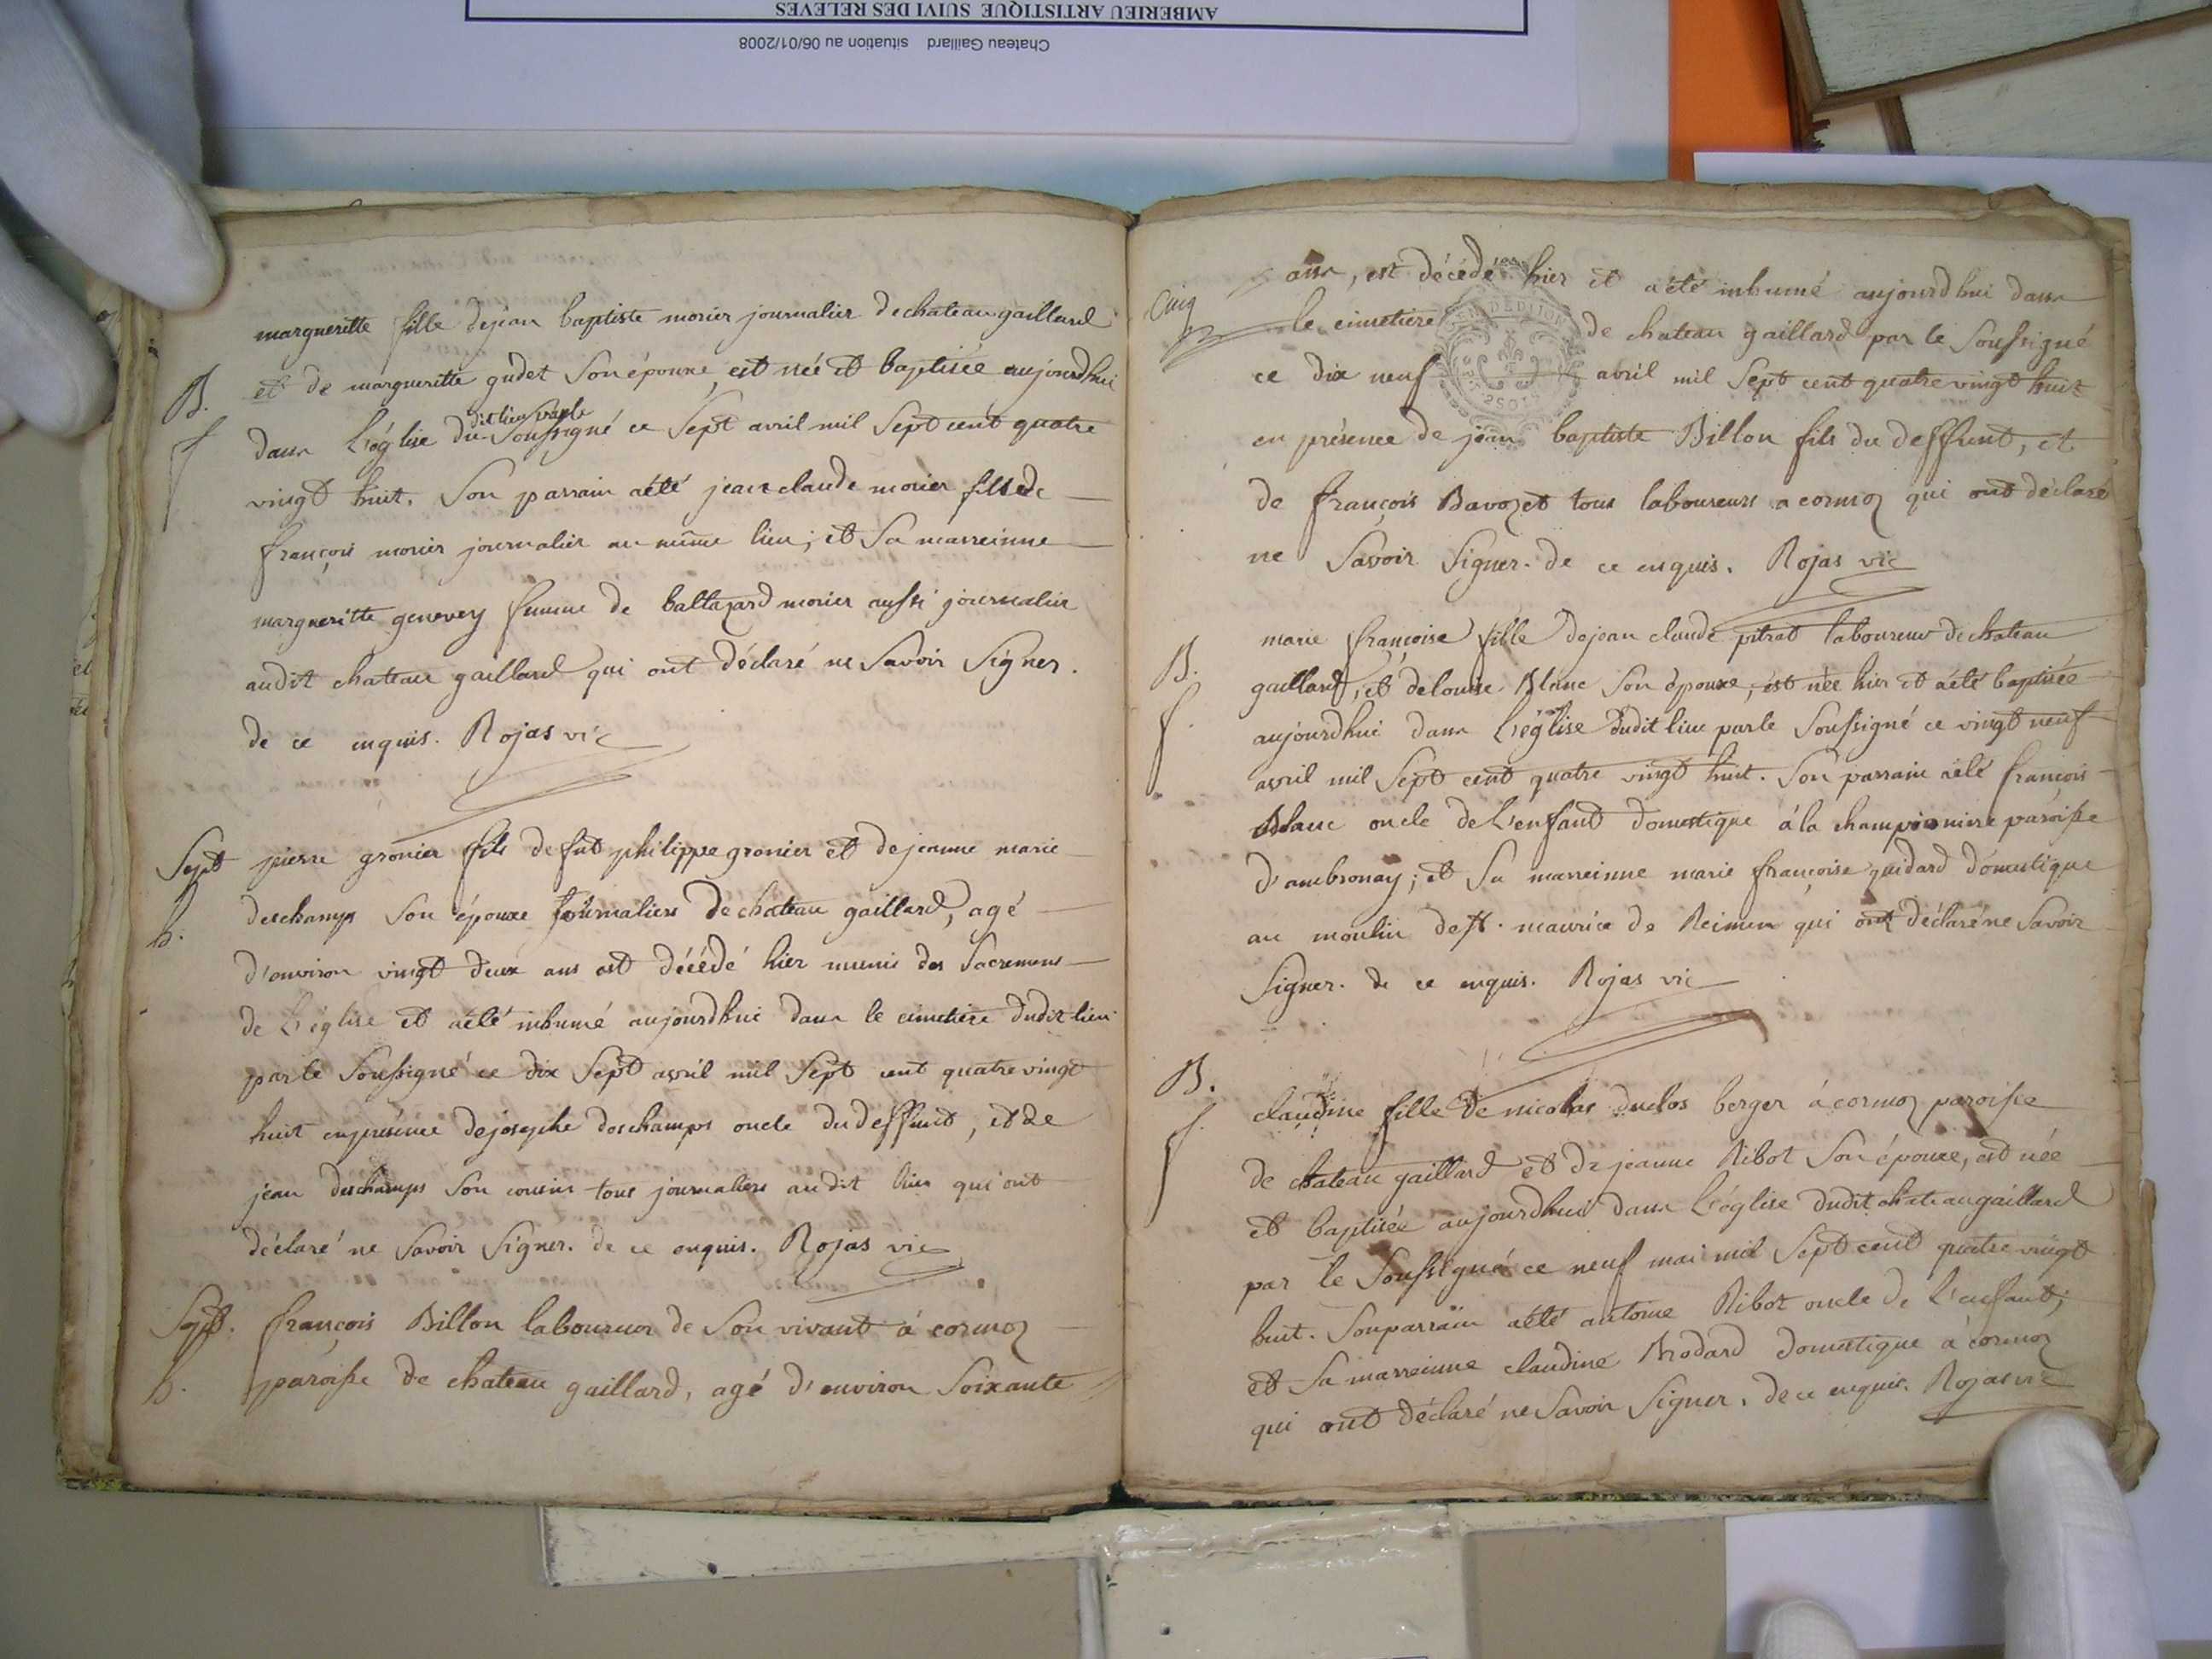 AMBERIEU ARTISTIQUE SUIVI DES RELEVES
Chateau Gaillard situation au 06/01/2008
margueritte fille dejean baptiste morier journalier de chateau gaillard
B. et de margueritte gudet Son épouxe, est née et baptisée aujourdhui
f dans L'église du dit lieu par le Soussigné ce Sept avril mil Sept cent quatre
vingt huit. Son parrain aété jean claude morier fils de
françois morier journalier au même lieu; et Sa marreinne
margueritte genevey femme de baltazard morier aussi journalier
audit chateau gaillard qui ont déclaré ne Savoir Signer.
de ce enquis. Rojas vic
Sept pierre gronier fils de fut philippe gronier et dejeanne marie
h. deschamps Son épouxe journaliers de chateau gaillard, agé
d'environ vingt deux ans est décédé hier munis des Sacremens
de L'église et aété inhumé aujourdhui dans le cimetiere dudit lieu
par le Soussigné ce dix Sept avril mil Sept cent quatre vingt
huit enprésence dejosephe deschamps oncle du deffunt, et de
jean deschamps Son cousin tous journaliers audit lieu qui ont
déclaré ne Savoir Signer. de ce enquis. Rojas vic
Sept. françois Billon laboureur de Son vivant á cormoz
h. paroisse de chateau gaillard, agé d'environ Soixante
Cinq ans, est décédé hier et aété inhumé aujourdhui dans
le cimetiere de chateau gaillard par le Soussigné
ce dix neuf avril mil Sept cent quatre vingt huit
en présence de jean baptiste Billon fils du deffunt, et
de françois Bavozet tous laboureurs a cormoz qui ont déclaré
ne Savoir Signer. de ce enquis. Rojas vic
marie françoise fille dejean claude pitrat laboureur de chateau
B. gaillard, et de louise Blanc Son épouxe, est née hier et aété baptisée
f. aujourdhui dans L'église dudit lieu par le Soussigné ce vingt neuf
avril mil Sept cent quatre vingt huit. Son parrain aété françois
Blanc oncle de L'enfant domestique á la championiere paroisse
d'ambronay; et Sa marreinne marie françoise guidard domestique
au moulin de st. maurice de Reimen qui ont déclaré ne Savoir
Signer. de ce enquis. Rojas vic
B. claudine fille de nicolas duclos berger á cormoz paroisse
f. de chateau gaillard et de jeanne Ribot Son épouxe, est née
et baptisée aujourdhui dans L'église dudit chateau gaillard
par le Soussigné ce neuf mai mil Sept cent quatre vingt
huit. Son parrain aété antoine Ribot oncle de L'enfant;
et Sa marreinne claudine Brodard domestique á cormoz
qui ont déclaré ne Savoir Signer. de ce enquis. Rojas vic